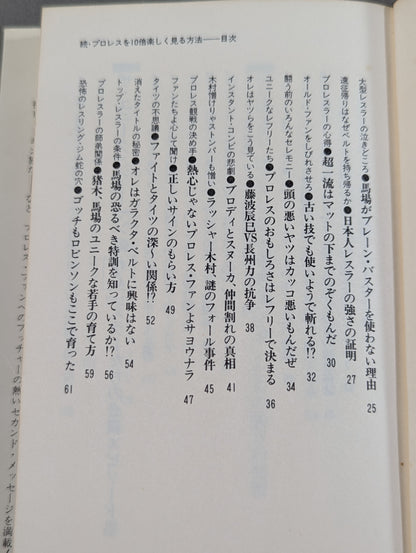 続・プロレスを10倍楽しく見る方法——目次
大型レスラーの泣きどころ●馬場がブレーン・バスターを使わない理由 25
遠征帰りはなぜベルトを持ち帰るか●日本人レスラーの強さの証明 27
プロレスラーの心得●超一流はマットの下までのぞくもんだ 30
オールド・ファンをしびれさせろ●古い技でも使いようで斬れる!? 32
闘う前のいろんなセレモニー●頭の悪いヤツはカッコ悪いもんだぜ 34
ユニークなレフリーたち●プロレスのおもしろさはレフリーで決まる 36
オレはヤツらをこう見ている●藤波辰巳VS長州力の抗争 38
インスタント・コンビの悲劇●ブロディとスヌーカ、仲間割れの真相 41
木村憎けりゃストンパーも憎い●ラッシャー木村、謎のフォール事件 45
プロレス観戦の決め手●熱心じゃないプロレス・ファンよサヨウナラ 47
ファンたちよ心して聞け●正しいサインのもらい方 49
タイツの不思議●ファイトとタイツの深〜い関係!? 52
消えたタイトルの秘密●オレはガラクタ・ベルトに興味はない 54
トップ・レスラーの条件●馬場の恐るべき特訓を知っているか!? 56
プロレスラーの師弟関係●猪木、馬場のユニークな若手の育て方 59
恐怖のレスリング・ジム蛇の穴●ゴッチもロビンソンもここで育った 61
プロレス・ファンへのブッチャーの熱いセカンド・メッセージを満載